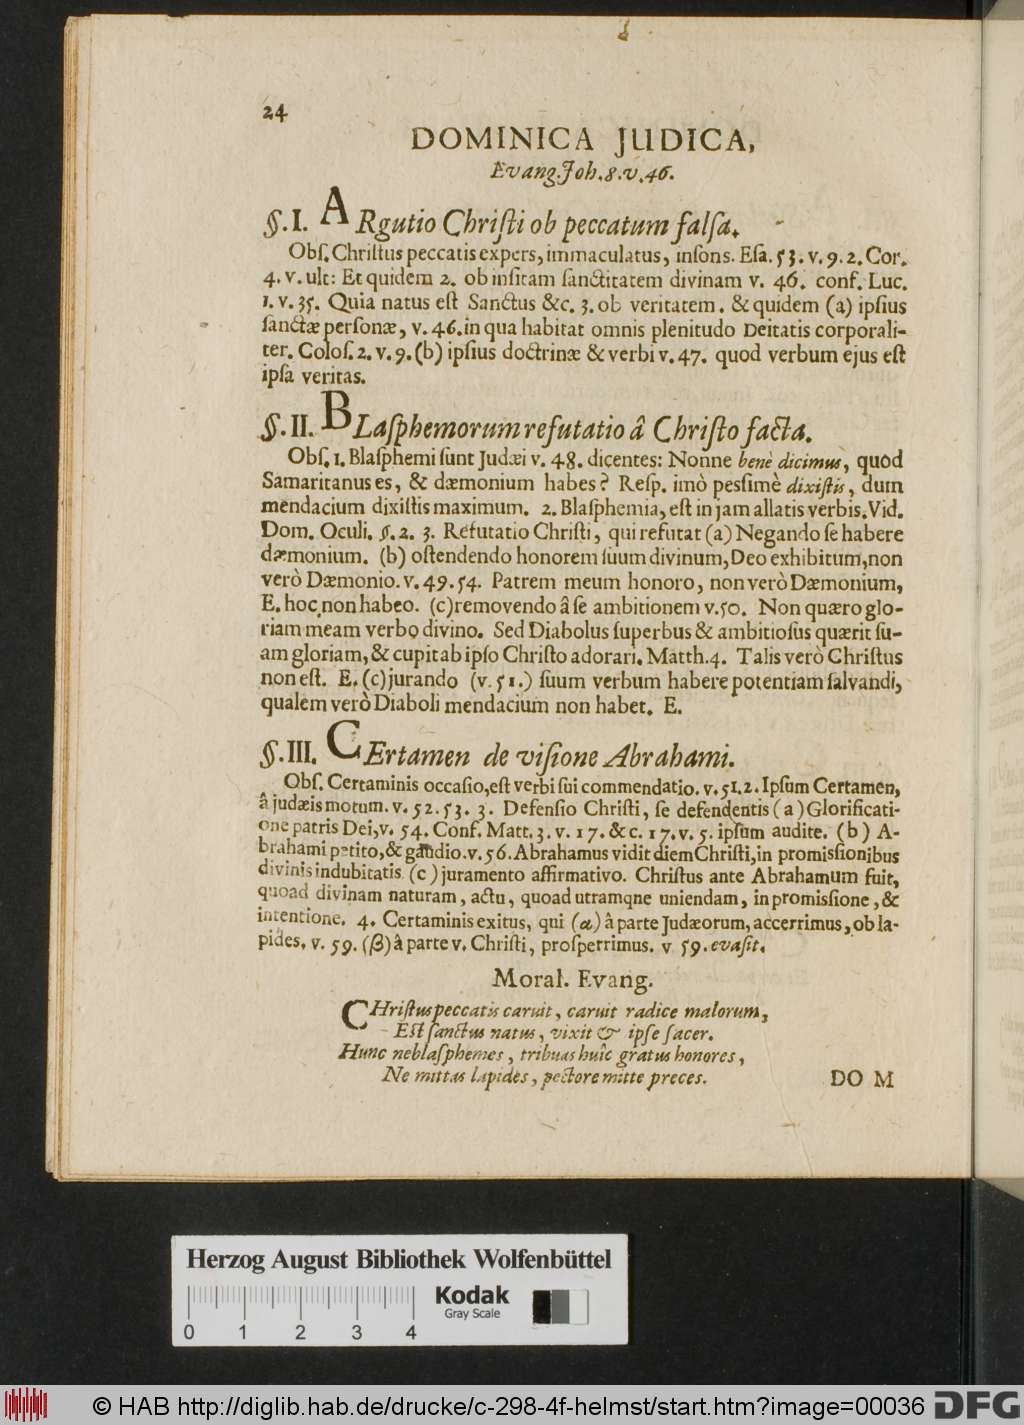 24
DOMINICA JUDICA,
Evang. Joh. 8. v. 46.
§. I. ARgutio Chriſti ob peccatum falſa.
Obſ. Chriſtus peccatis expers, immaculatus, inſons. Eſa. 53. v. 9. 2. Cor.
4. v. ult: Et quidem 2. ob inſitam ſanctitatem divinam v. 46. conf. Luc.
1. v. 35. Quia natus eſt Sanctus &c. 3. ob veritatem. & quidem (a) ipſius
ſanctæ perſonæ, v. 46. in qua habitat omnis plenitudo Deitatis corporali-
ter. Coloſ. 2. v. 9. (b) ipſius doctrinæ & verbi v. 47. quod verbum ejus eſt
ipſa veritas.
§. II. BLaſphemorum refutatio â Chriſto facta.
Obſ. 1. Blaſphemi ſunt Judæi v. 48. dicentes: Nonne benè dicimus, quod
Samaritanus es, & dæmonium habes? Reſp. imò pessimè dixiſtis, dum
mendacium dixiſtis maximum. 2. Blaſphemia, eſt in jam allatis verbis. Vid.
Dom. Oculi. §. 2. 3. Refutatio Chriſti, qui refutat (a) Negando ſe habere
dæmonium. (b) oſtendendo honorem ſuum divinum, Deo exhibitum, non
verò Dæmonio. v. 49. 54. Patrem meum honoro, non verò Dæmonium,
E. hoc non habeo. (c) removendo â ſe ambitionem v. 50. Non quæro glo-
riam meam verbo divino. Sed Diabolus ſuperbus & ambitioſus quærit ſu-
am gloriam, & cupit ab ipſo Chriſto adorari. Matth. 4. Talis verò Chriſtus
non eſt. E. (c) jurando (v. 51.) ſuum verbum habere potentiam ſalvandi,
qualem verò Diaboli mendacium non habet. E.
§. III. CErtamen de viſione Abrahami.
Obſ. Certaminis occaſio, eſt verbi ſui commendatio. v. 51. 2. Ipſum Certamen,
â judæis motum. v. 52. 53. 3. Defenſio Chriſti, ſe defendentis (a) Glorificati-
one patris Dei, v. 54. Conf. Matt. 3. v. 17. & c. 17. v. 5. ipſum audite. (b) A-
brahami petito, & gaudio. v. 56. Abrahamus vidit diem Chriſti, in promiſſionibus
divinis indubitatis (c) juramento affirmativo. Chriſtus ante Abrahamum fuit,
quoad divinam naturam, actu, quoad utramqne uniendam, in promiſſione, &
intentione. 4. Certaminis exitus, qui (α) â parte Judæorum, accerrimus, ob la-
pides. v. 59. (β) à parte v. Chriſti, proſperrimus. v 59. evaſit.
Moral. Evang.
CHriſtus peccatis caruit, caruit radice malorum,
Eſt ſanctus natus, vixit & ipſe ſacer.
Hunc ne blaſphemes, tribuas huic gratus honores,
Ne mittas lapides, pectore mitte preces.
DO M
Herzog August Bibliothek Wolfenbüttel
Kodak
Gray Scale
0 1 2 3 4
© HAB http://diglib.hab.de/drucke/c-298-4f-helmst/start.htm?image=00036
DFG